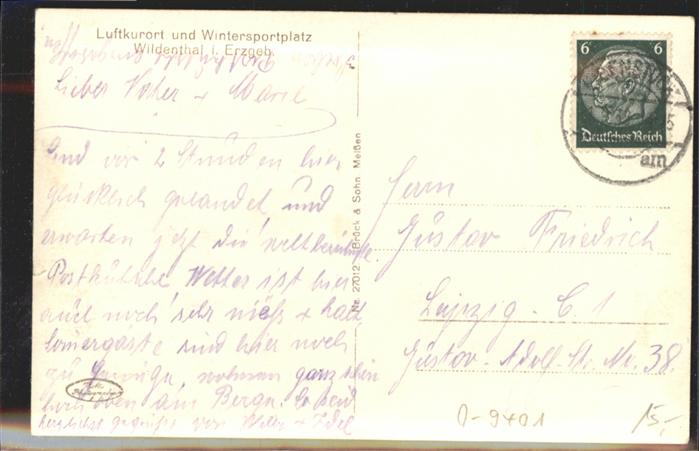 Luftkurort und Wintersportplatz
Wildenthal i. Erzgeb.
Lieber Vater + Marie
Sind vor 2 Stunden hier
glücklich gelandet und
erwarten jetzt die weltberühmte
Postkutsche Wetter ist hier
auch noch sehr naß + kalt
sind hier noch
zu wohnen ganz
oben am Berge. So seid
herzlichst gegrüßt von
Nr. 27012 Brück & Sohn Meißen
6 6
Deutsches Reich
am
Herrn
Gustav Friedrich
Leipzig - C. 1
Gustav-Adolf-St. Nr. 38.
D-9401
15,-